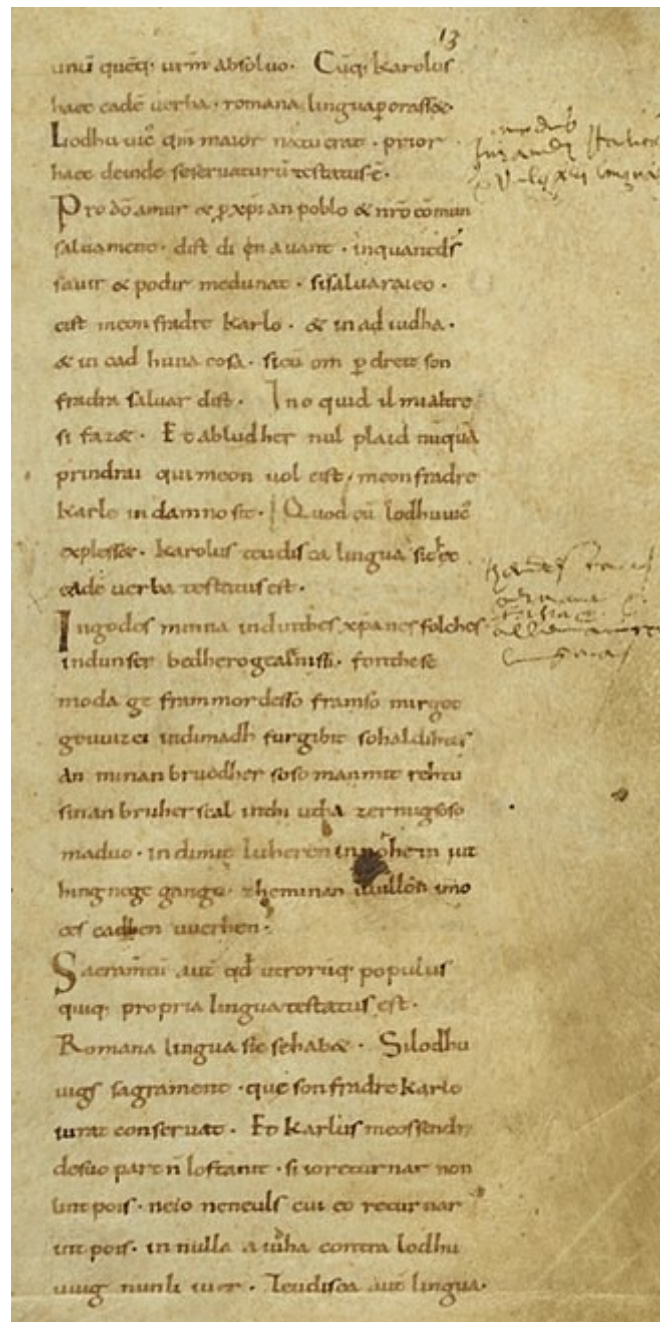 13
unū quēq; ur̄m absoluo. Cūq; karolus
haec eadē uerba romana lingua porasset.
Lodhuuic̄ qm̄ maior natuerat. prior
haec deinde seseruaturū testatus ē.
Pro dō amur & ꝑ xp̄ian poblo & nr̄o cōmun
saluament. dist di en auant. inquantd̄s
sauir & podir medunat. sisaluaraieo.
cist meonfradre karlo. & in ad iudha.
& in cad huna cosa. sicū om ꝑ dreit son
fradra saluar dist. Ino quid il mialtre
si faz&. Et abludher nul plaid nūquā
prindrai qui meon uol cist, meonfradre
karle in damno sit. Quod cū lodhuuic̄
explesset. karolus teudisca lingua sic ec
eadē uerba testatus est.
Ingodes minna indinthes xp̄anes folches.
indunser bedherogealt̄nissi. fonthese
moda ge frammordesso framso mirgot
geuuizci indimadh furgibit sohaldihtes
an minan bruodher soso manmit rehtu
sinan bruher scal inthi utha zermigsoso
maduo. indimit luheren innohein iut
hing nege gango. zheminan uuillon imo
ces cadhen uuerhen.
Sacramtū aut̄ qd̄ utrorūq; populus
quiq; propria lingua testatus est.
Romana lingua sic sehabæ. Silodhu
uigs sagrament. que son fradre karlo
iurat conseruat. Et karlus meossendr̄
desuo part n̄ lostanit. si ioreturnar non
lint pois. neio neneuls cui eo returnar
int pois. in nulla aiuha contra lodhu
uuig nunli iuer. Teudisca aut̄ lingua.